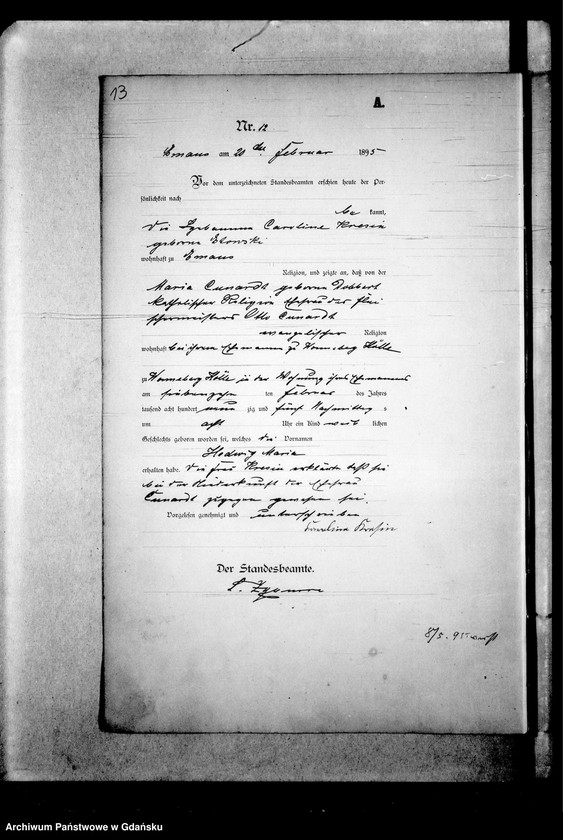 13
A.
Nr. 12
Emaus am 20 ten Februar 1895
Vor dem unterzeichneten Standesbeamten erschien heute der Per-
sönlichkeit nach
be kannt,
die Hebamme Caroline Kresin
geborene
wohnhaft zu Emaus
Religion, und zeigte an, daß von der
Maria Cunardt geborene Dobbert
katholischer Religion Ehefrau des Flei
schermeisters Otto Cunardt
evangelischer Religion
wohnhaft bei ihrem Ehemanne zu Wonneberg Hölle
zu Wonneberg Hölle in der Wohnung ihres Ehemannes
am siebenzehn ten Februar des Jahres
tausend acht hundert neun zig und fünf Nachmittags
um acht Uhr ein Kind weib lichen
Geschlechts geboren worden sei, welches die Vornamen
Hedwig Maria
erhalten habe. Die Frau Kresin erklärte daß sie
bei der Niederkunft der Ehefrau
Cunardt zugegen gewesen sei.
Vorgelesen genehmigt und unterschrieben
Caroline Kresin
Der Standesbeamte.
8/5. 95
Archiwum Państwowe w Gdańsku